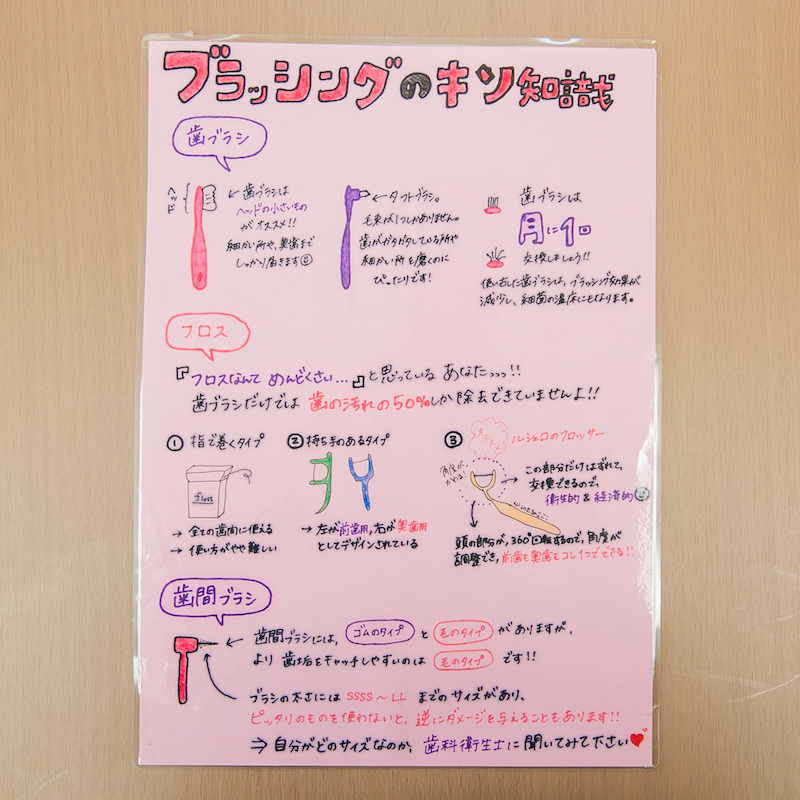 ブラッシングのキソ知識
歯ブラシ
ヘッド
← 歯ブラシは
ヘッドの小さいもの
がオススメ!!
細かい所や、奥歯まで
しっかり届きます
← タフトブラシ。
毛束が1つしかありません。
歯がガタガタしている所や
細かい所を磨くのに
ぴったりです!
歯ブラシは
月に1回
交換しましょう!!
使い古した歯ブラシは、ブラッシング効果が
減少し、細菌の温床にもなります。
フロス
『フロスなんて めんどくさい…』と思っている あなたっっっ!!
歯ブラシだけでは 歯の汚れの50%しか除去できていませんよ!!
① 指で巻くタイプ
floss
→ 全ての歯間に使える
→ 使い方がやや難しい
② 持ち手のあるタイプ
→ 左が前歯用、右が奥歯用
としてデザインされている
③ オススメ ルシェロのフロッサー
角度が、
かわる!
→ この部分だけはずれて、
交換できるので、
衛生的&経済的
頭の部分が、360°回転するので、角度が
調整でき、前歯も奥歯もコレ1つでできる!!
歯間ブラシ
← 歯間ブラシには、ゴムのタイプ と 毛のタイプ がありますが、
より 歯垢をキャッチしやすいのは 毛のタイプ です!!
ブラシの太さには SSSS〜LL までのサイズがあり、
ピッタリのものを使わないと、逆にダメージを与えることもあります!!
⇒ 自分がどのサイズなのか、歯科衛生士に聞いてみて下さい♥